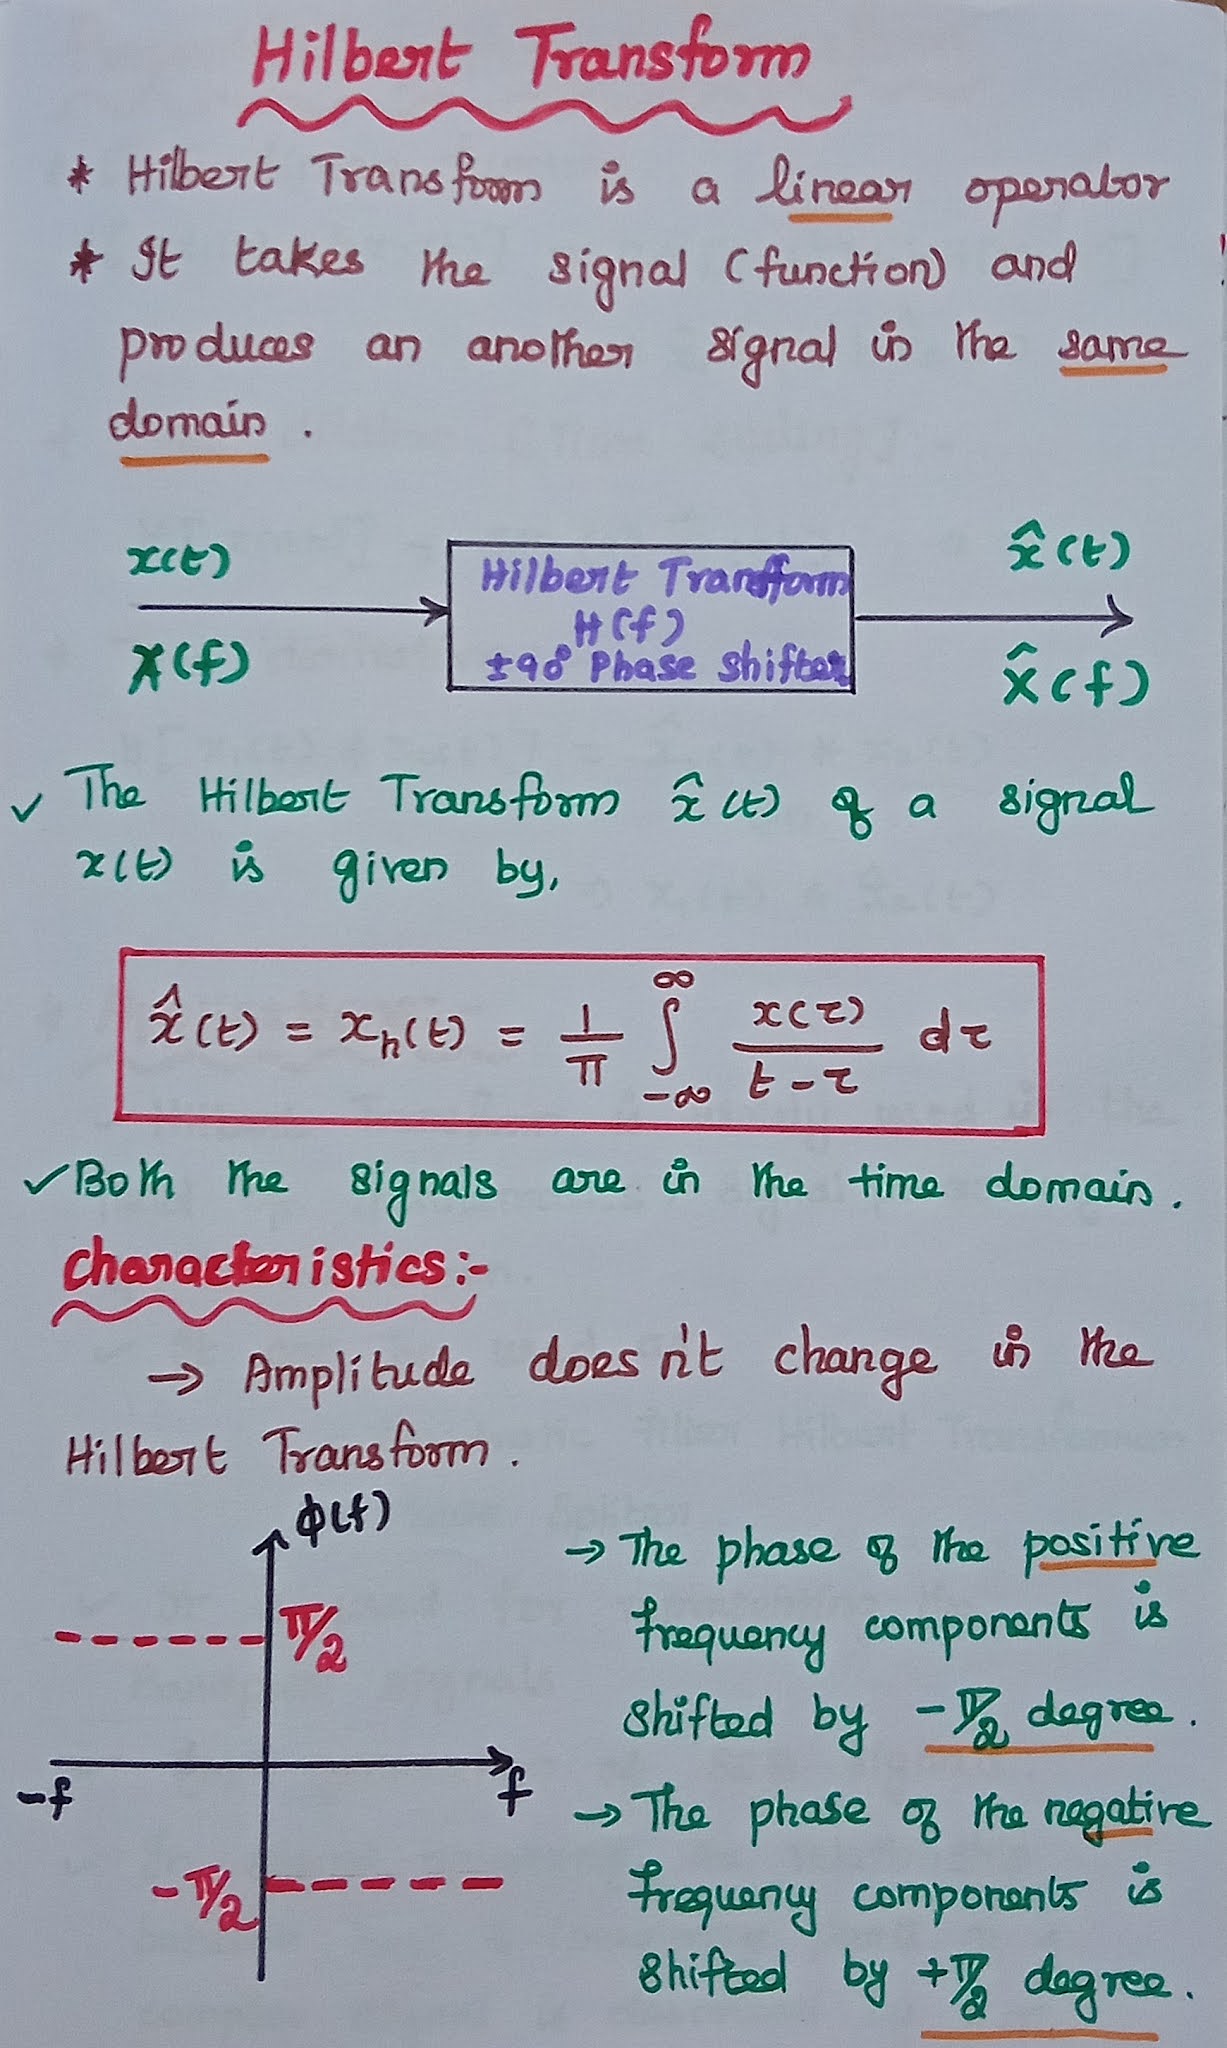 Hilbert Transform
* Hilbert Transform is a linear operator
* It takes the signal (function) and
produces an another signal in the same
domain.
x(t)
X(f)
Hilbert Transform
H(f)
±90° Phase shifter
x̂(t)
X̂(f)
✓ The Hilbert Transform x̂(t) of a signal
x(t) is given by,
x̂(t) = xₕ(t) = 1/π ∫_{-∞}^{∞} x(τ)/(t-τ) dτ
✓ Both the signals are in the time domain.
Characteristics:-
→ Amplitude does n't change in the
Hilbert Transform.
ϕ(f)
π/2
-f
f
-π/2
→ The phase of the positive
frequency components is
shifted by -π/2 degree.
→ The phase of the negative
frequency components is
shifted by +π/2 degree.